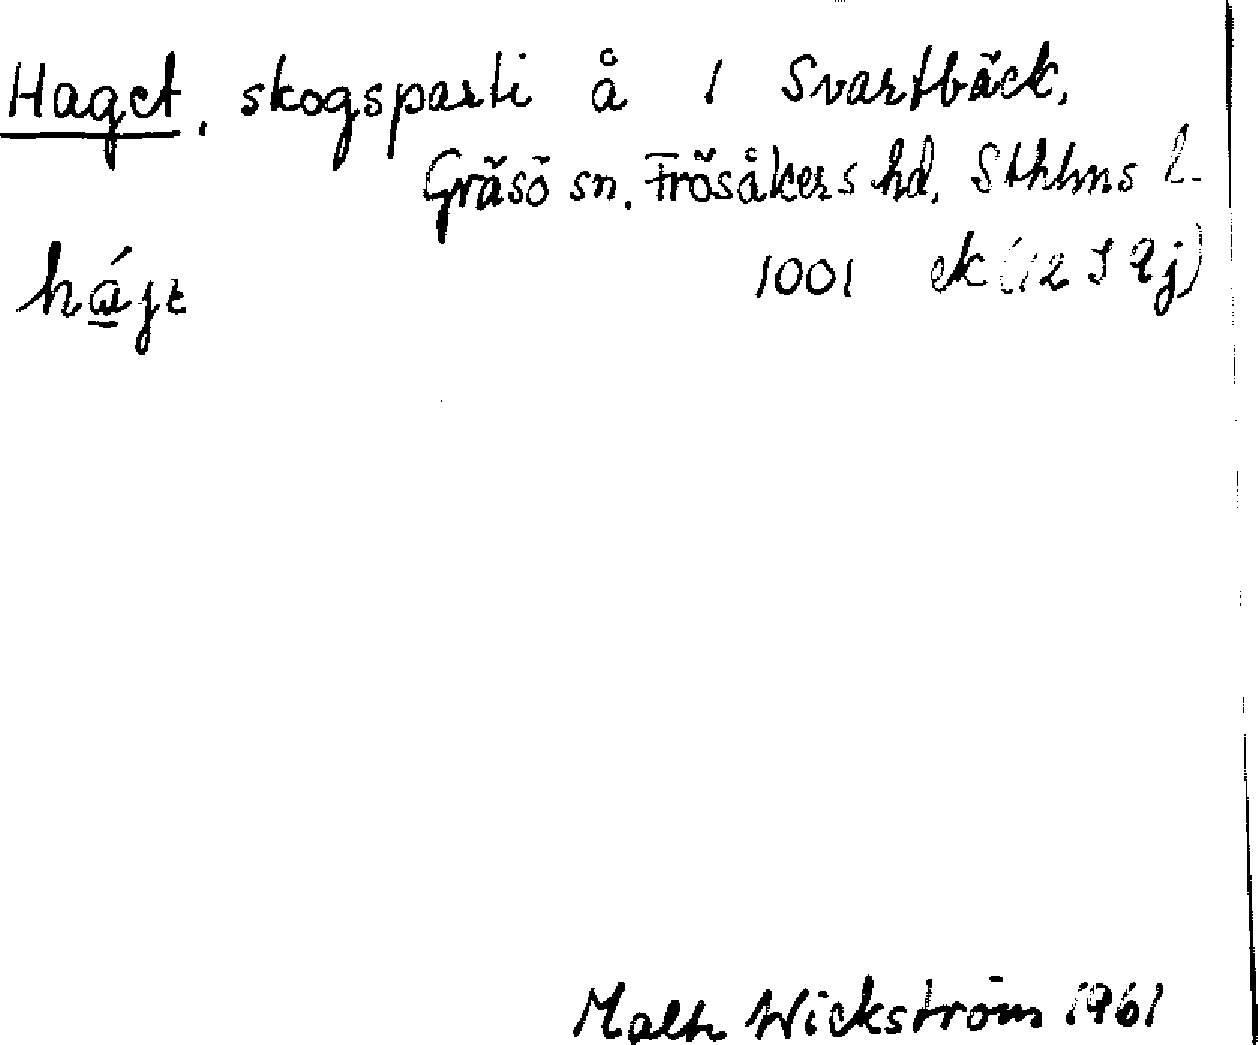 Haget, skogsparti å 1 Svartbäck,
Gräsö sn. Frösåkers hd. Sthlms l.
hájt 1001 ek (12 I 9j)
Malte Wickström 1961